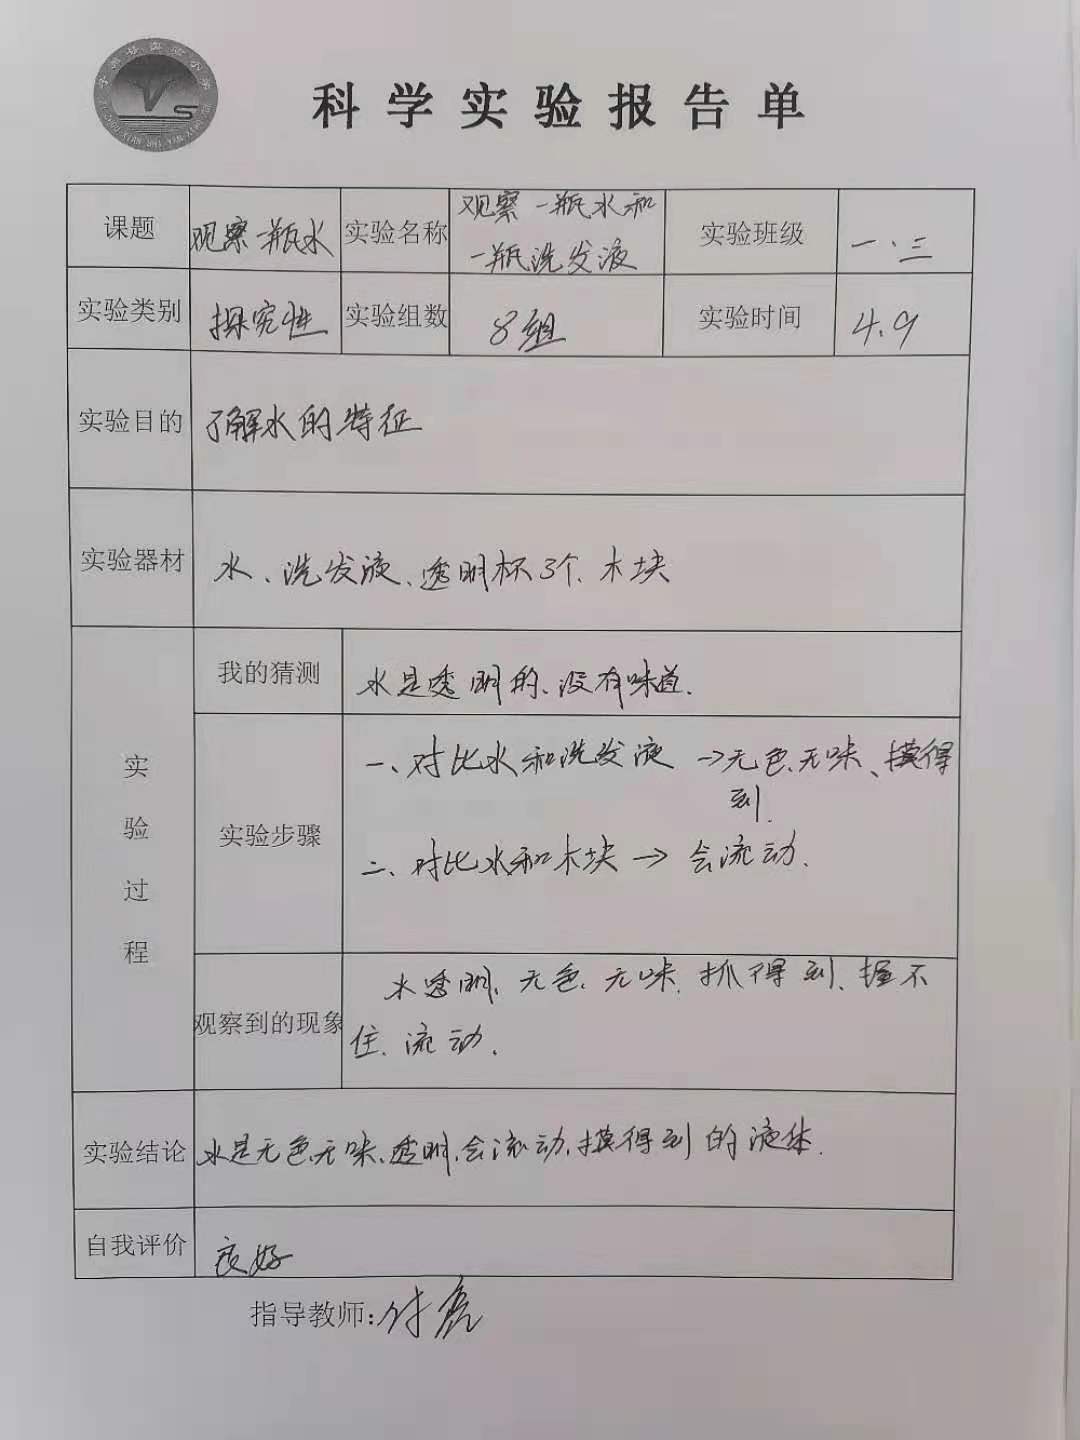 科学实验报告单
课题 观察一瓶水 实验名称 观察一瓶水和
一瓶洗发液 实验班级 一.三
实验类别 探究性 实验组数 8组 实验时间 4.9
实验目的 了解水的特征
实验器材 水、洗发液、透明杯3个、木块
实验过程
我的猜测 水是透明的、没有味道.
实验步骤 一、对比水和洗发液 →无色、无味、摸得
到.
二、对比水和木块→ 会流动.
观察到的现象 水透明、无色、无味、抓得到、握不
住、流动.
实验结论 水是无色、无味、透明、会流动、摸得到的液体.
自我评价 良好
指导教师:付亮